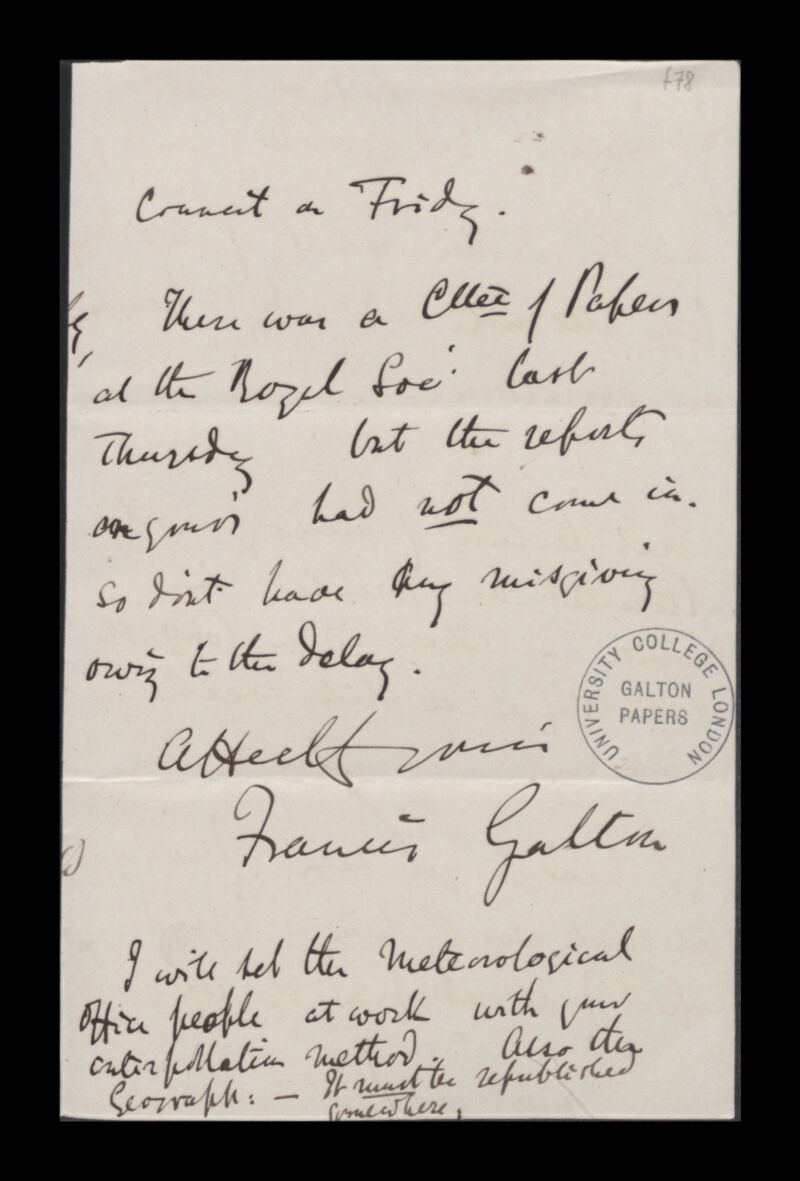 f78
Council on Friday.
There was a Cttee of Papers
at the Royal Soc: last
Thursday but the reports
on yours had not come in.
So don't have any misgiving
owing to the delay.
Affectly yours
Francis Galton
UNIVERSITY COLLEGE LONDON
GALTON
PAPERS
I will set the Meteorological
Office people at work with your
interpollation method. Also the
Geograph: — It must be republished
somewhere.